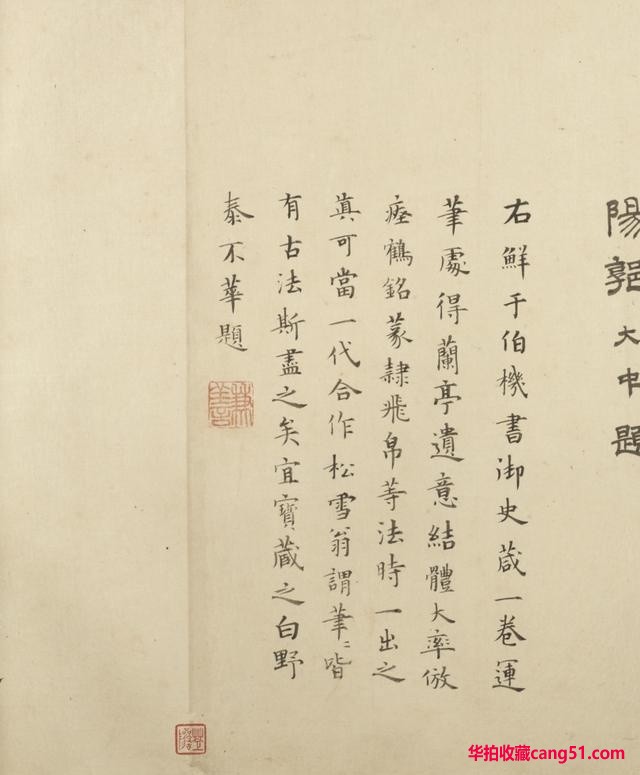 陽郭大中題
右鮮于伯機書御史葴一卷運
筆處得蘭亭遺意結體大率倣
瘞鶴銘篆隷飛帛等法時一出之
真可當一代合作松雪翁謂筆〻皆
有古法斯盡之矣宜寶蔵之白野
泰不華題
兼善
华拍收藏cang51.com